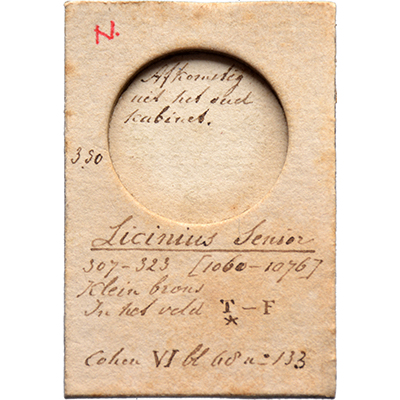 N.
Afkomstig
uit het oud
kabinet.
3.50
Licinius Senior
307-323 [1060-1076]
Klein brons
In het veld T-F
*
Cohen VI bl 68 nº 133